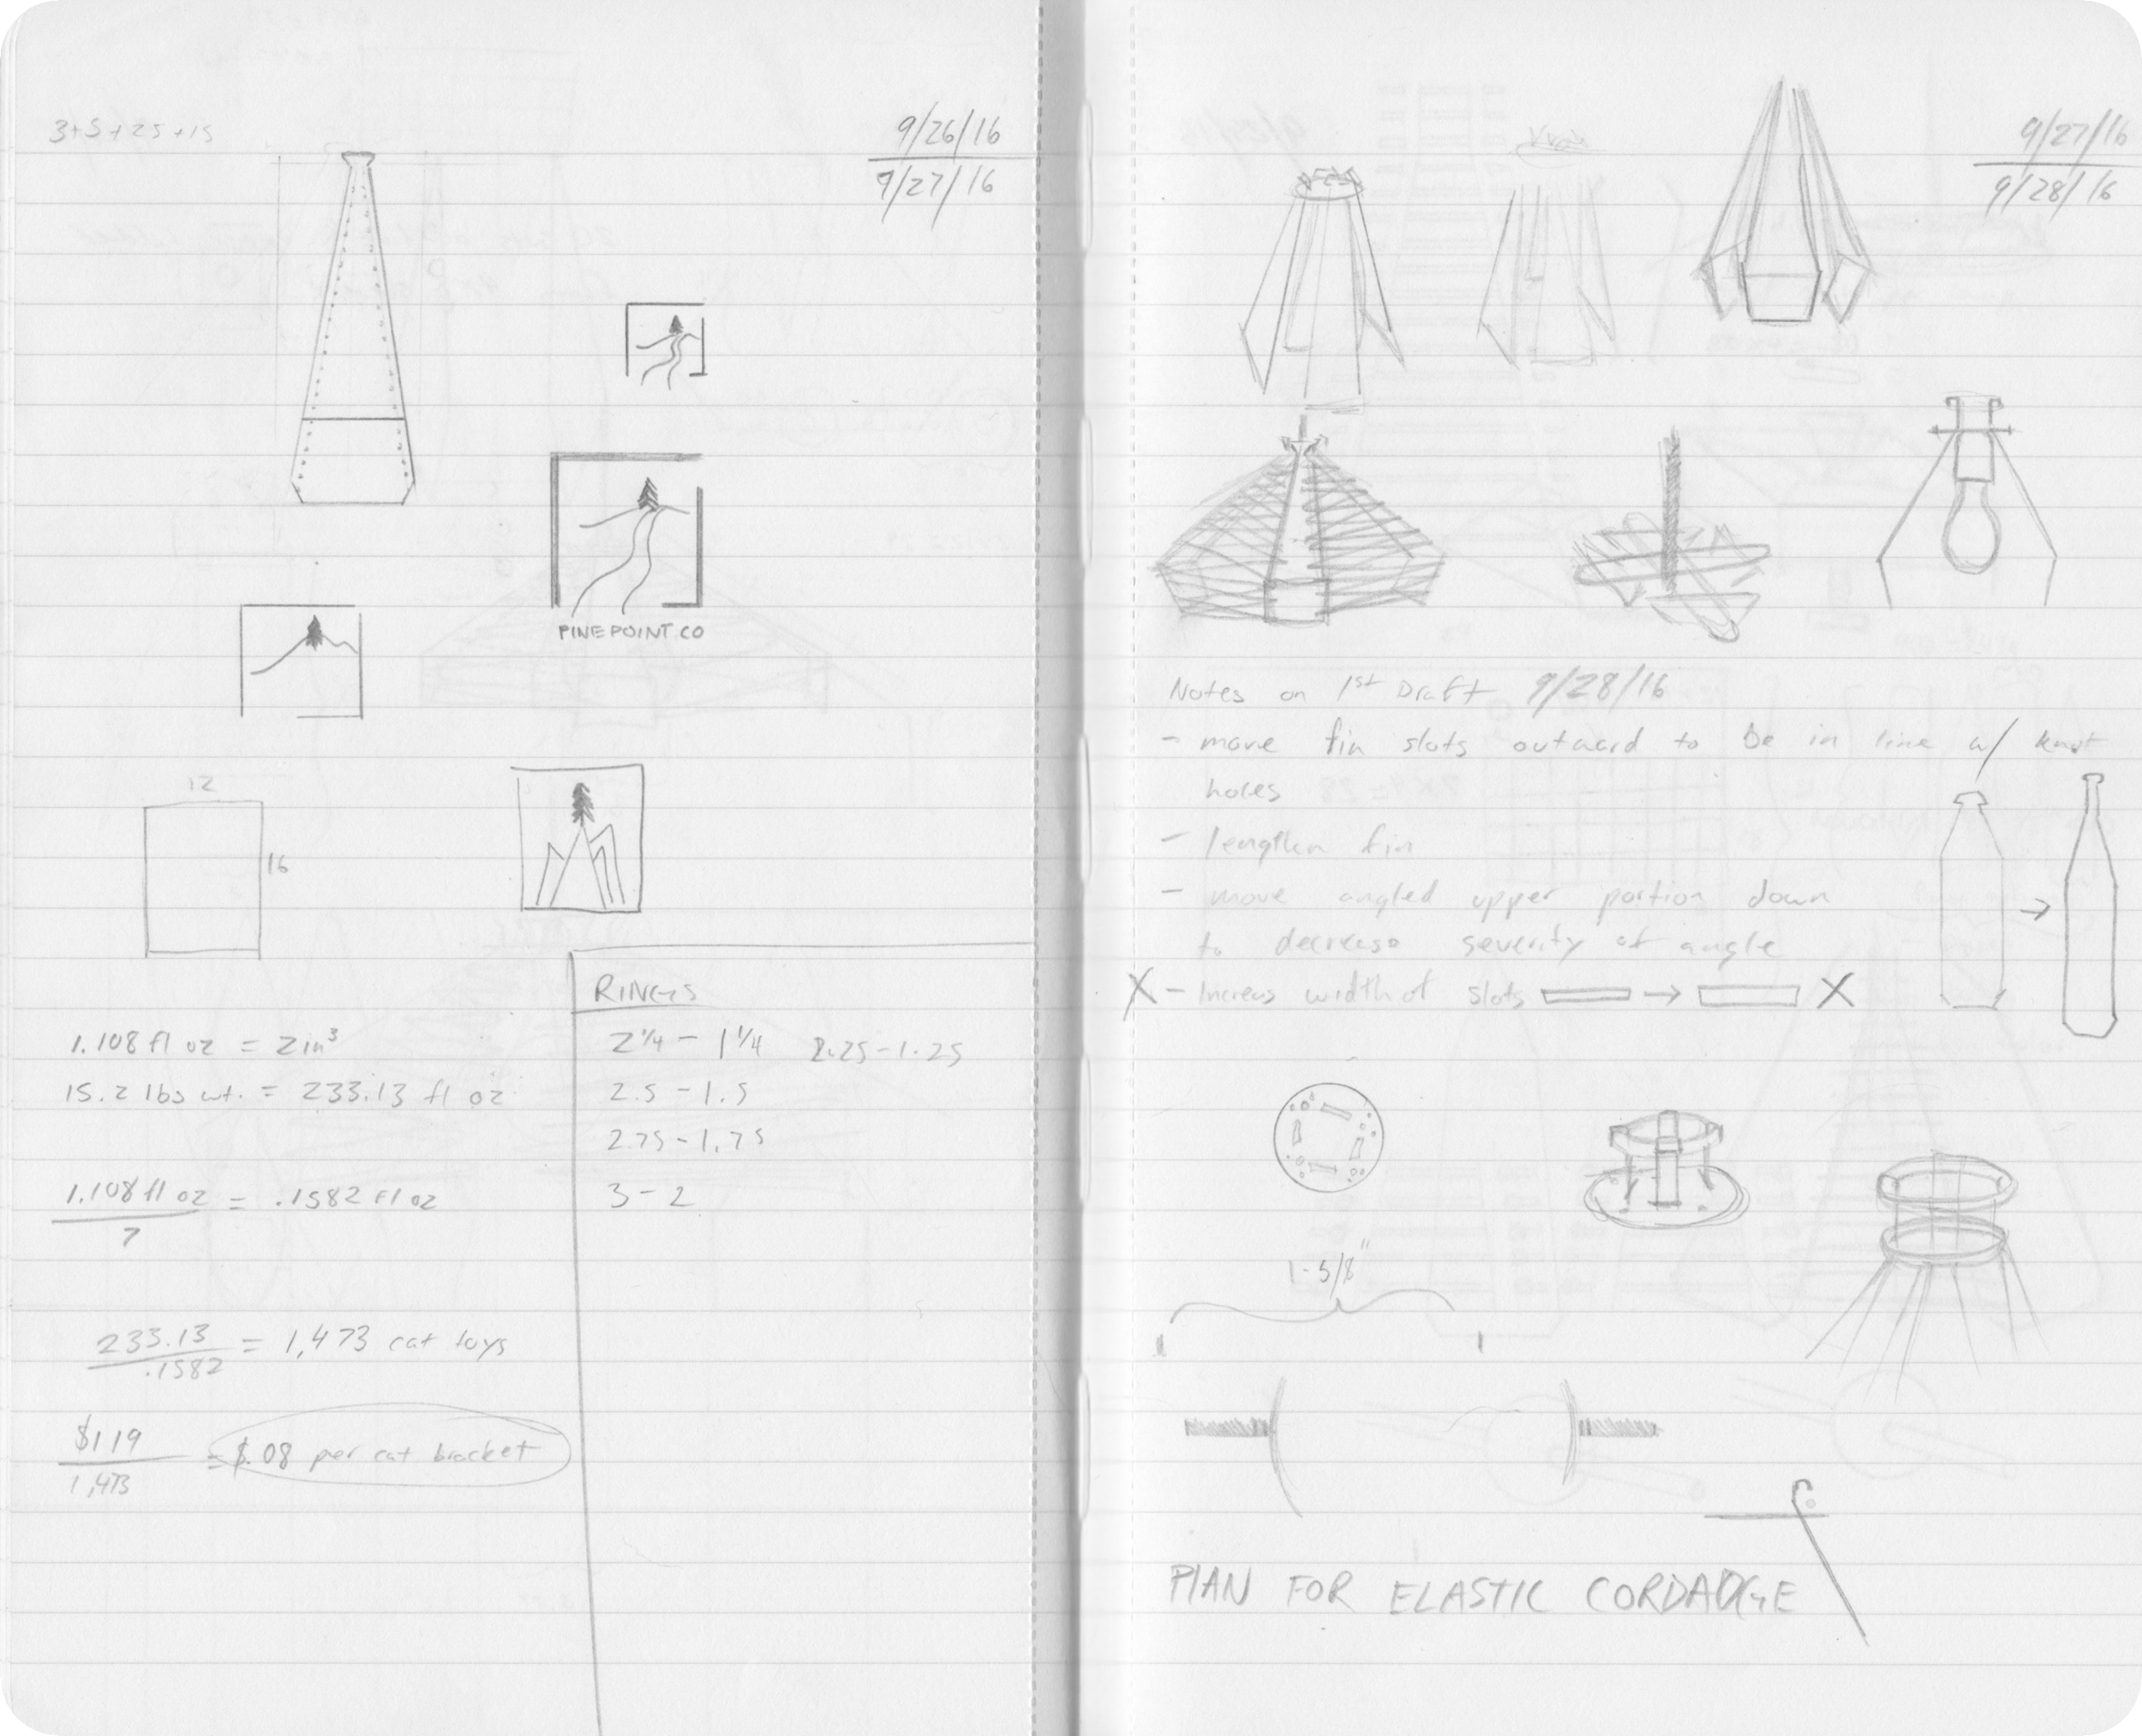 3+5+25+15
9/26/16
9/27/16
PINEPOINT CO
12
16
1.108 fl oz = 2in³
15.2 lbs wt. = 233.13 fl oz
1.108 fl oz = .1582 fl oz
7
233.13 = 1,473 cat toys
.1582
$119 = $.08 per cat bracket
1,473
RINGS
2 1/4 - 1 1/4 2.25-1.25
2.5 - 1.5
2.75-1.75
3-2
9/27/16
9/28/16
Notes on 1st Draft 9/28/16
- move fin slots outward to be in line w/ knot
holes
- lengthen fin
- move angled upper portion down
to decrease severity of angle
X - Increas width of slots → X
→
1-5/8"
PLAN FOR ELASTIC CORDADGE